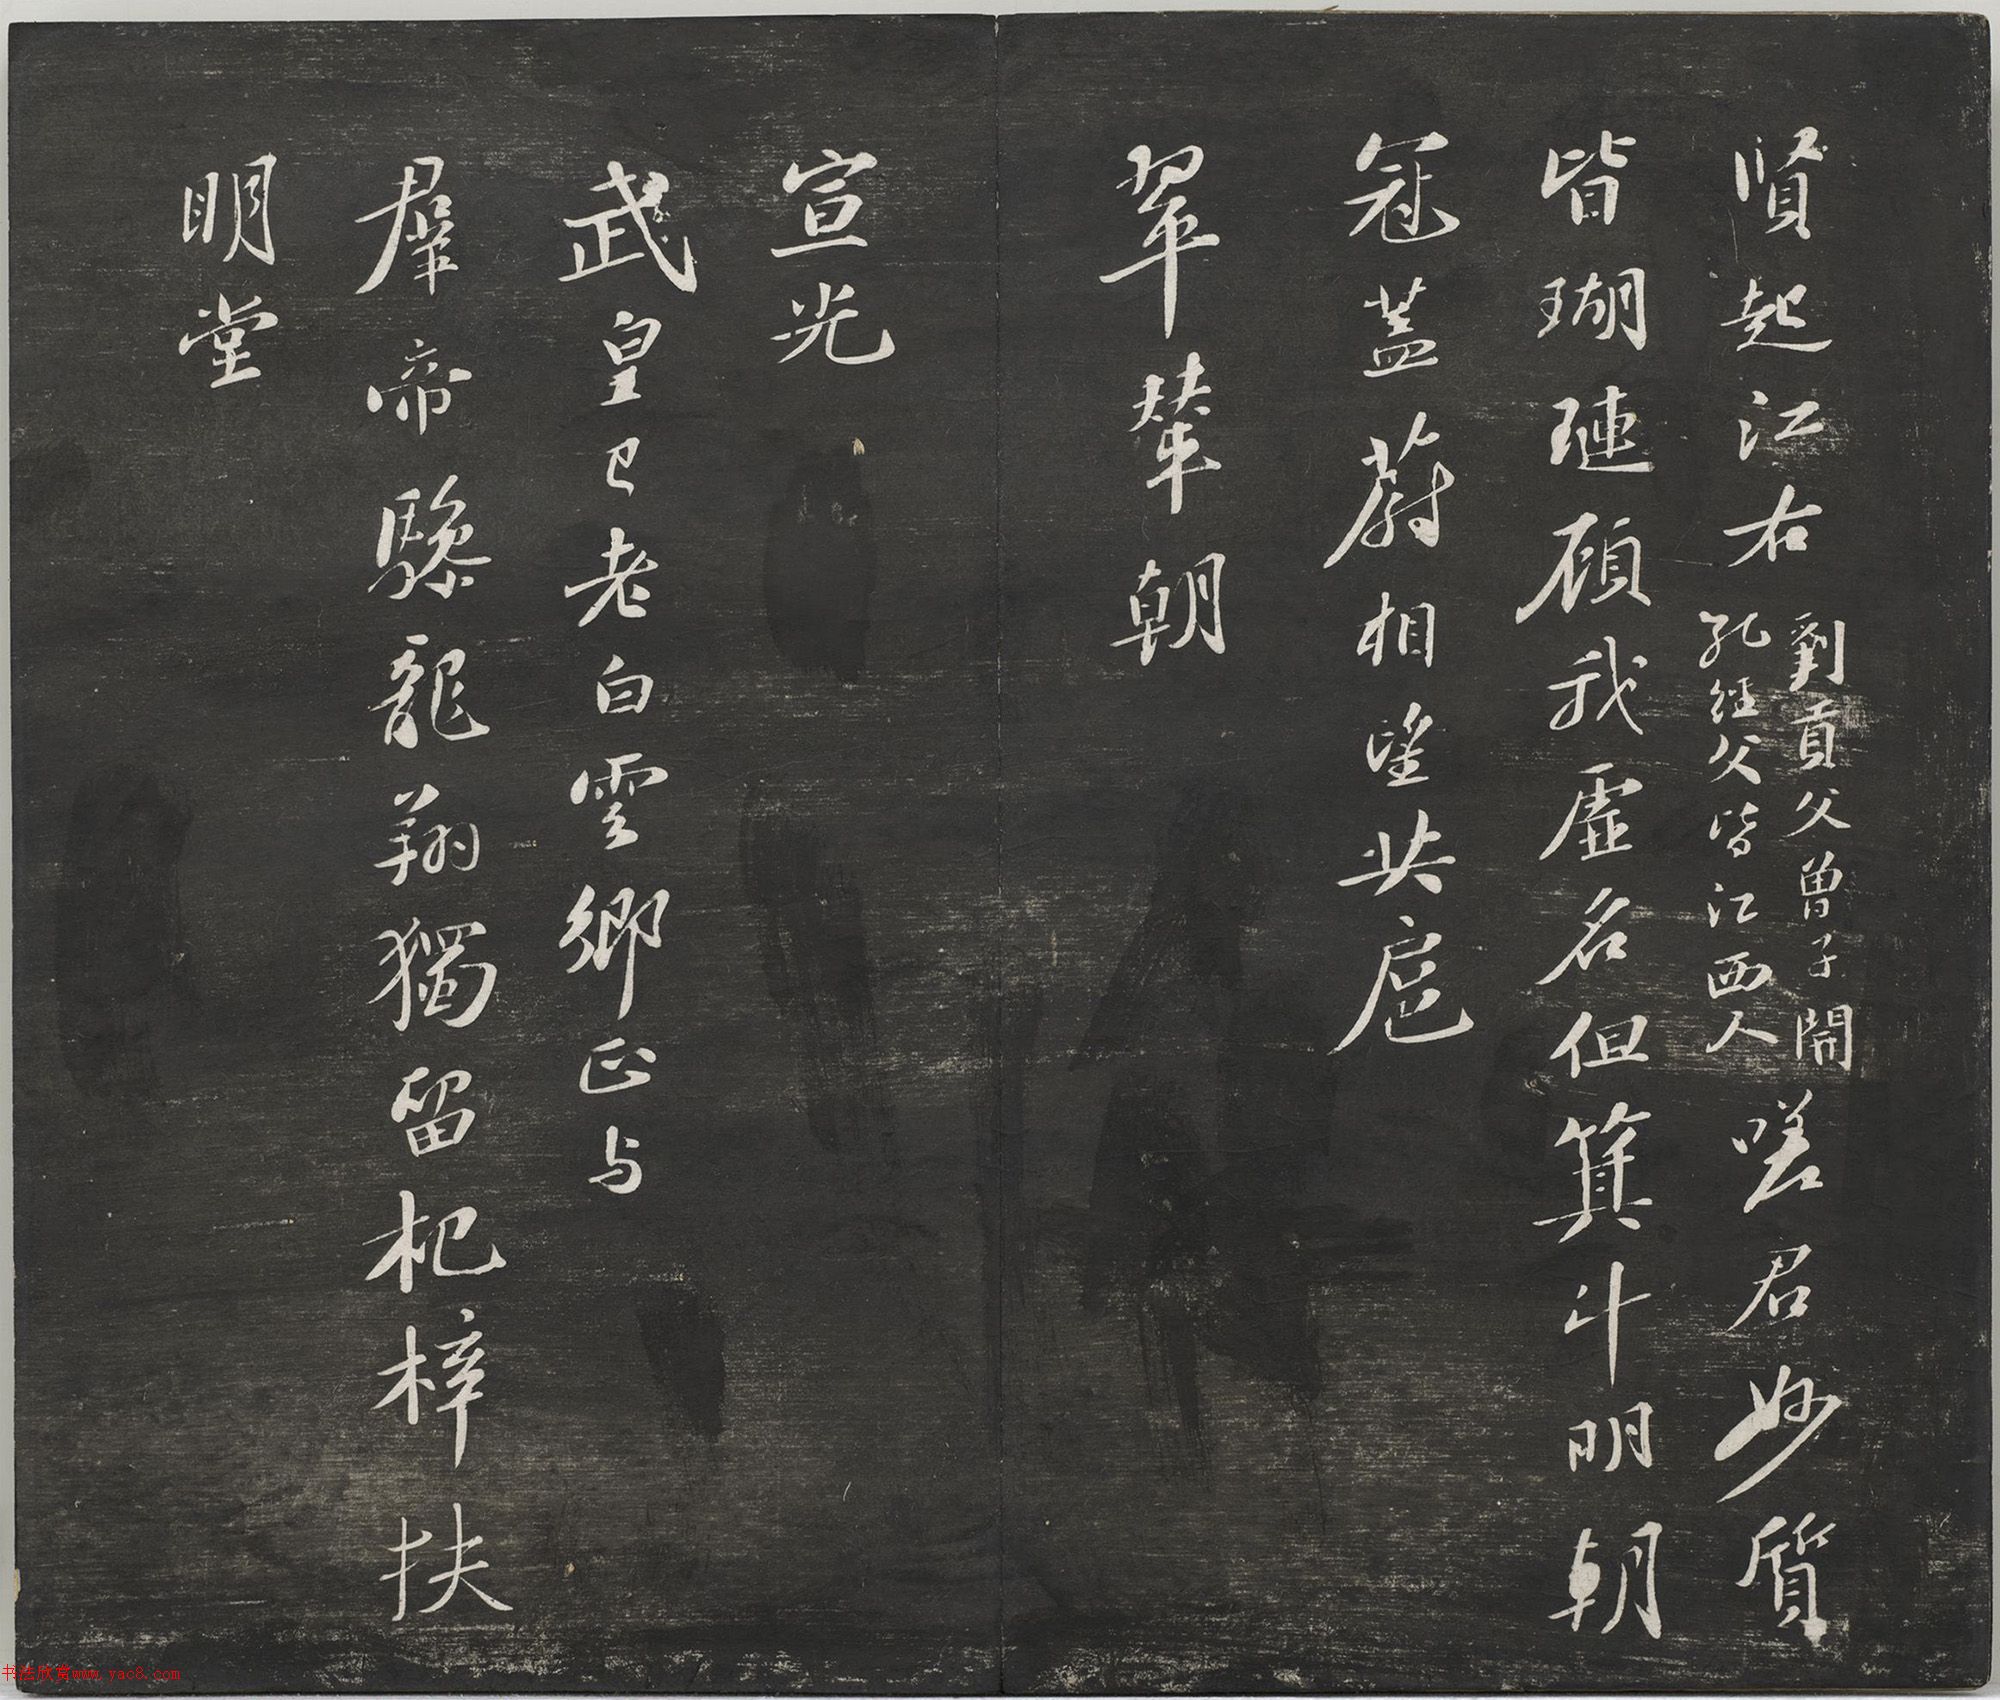 賢起江右劉貢父曾子開孔經父皆江西人嗟君妙質
皆瑚璉顧我虛名但箕斗明朝
冠蓋蔚相望共扈
翠輦朝
宣光
武皇已老白雲鄉正与
羣帝驂龍翔獨留杞梓扶
明堂
书法欣赏www.yac8.com